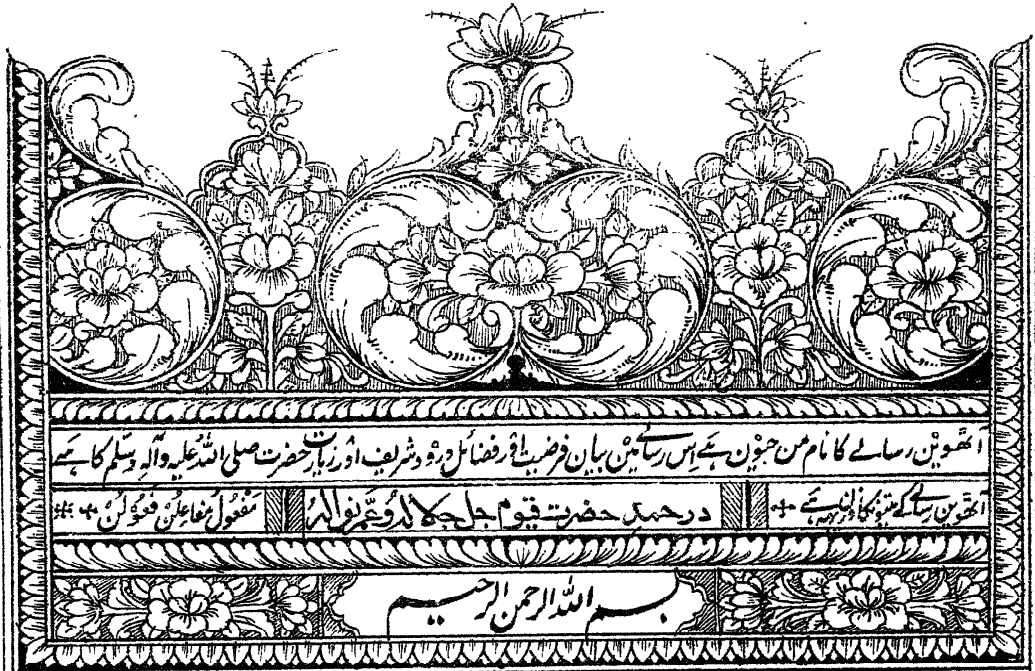 آٹھوین رسالے کا نام من جیون ہے اِس رسالے مین بیان فرضیت اور فضائل درود شریف اور زیارت حضرت صلی اللہ علیہ وآلہ وسلم کا ہے
آٹھوین رسالے کے در حمد حضرت قیوم جل جلالہ وعم نوالہ مفعول مفاعلن فعولن
بسم اللہ الرحمن الرحیم